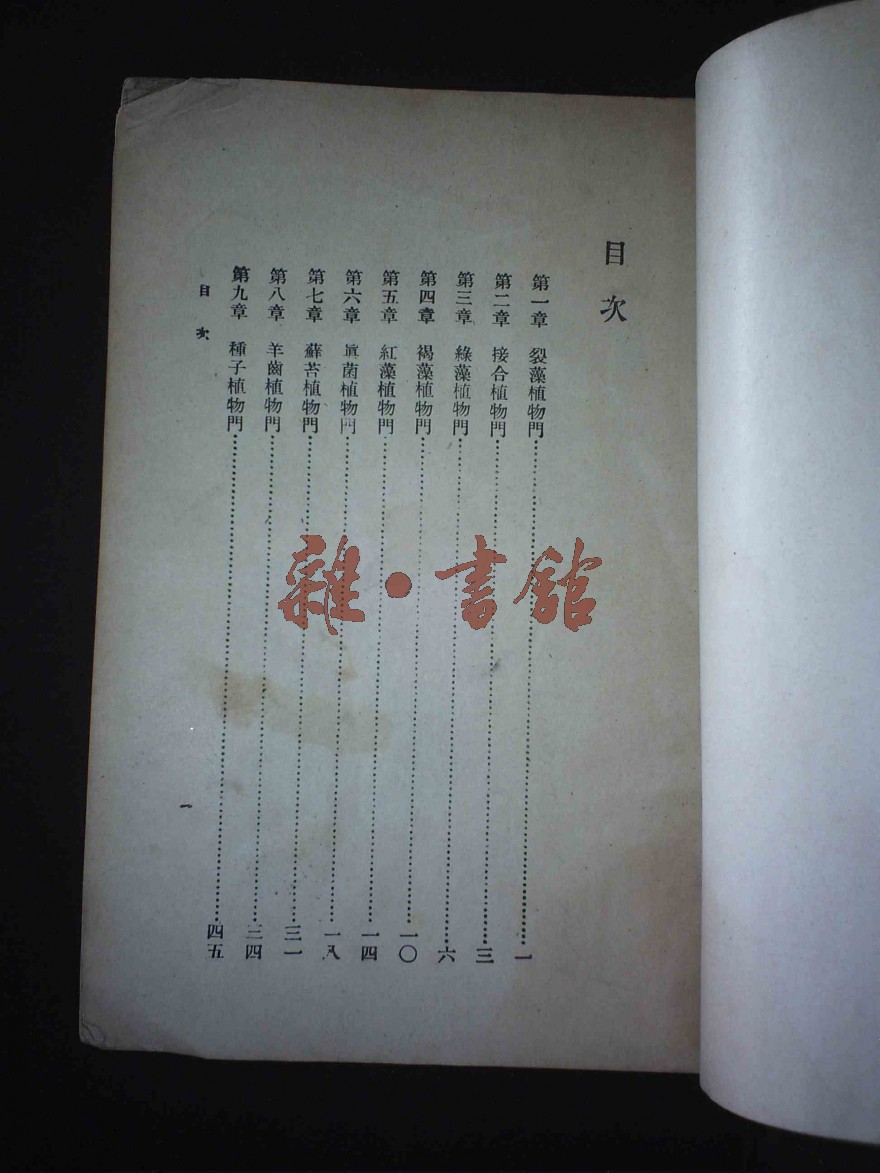 目次
第一章 裂藻植物門 一
第二章 接合植物門 三
第三章 綠藻植物門 六
第四章 褐藻植物門 一〇
第五章 紅藻植物門 一四
第六章 眞菌植物門 一八
第七章 蘇苔植物門 三一
第八章 羊齒植物門 三四
第九章 種子植物門 四五
目次
一
雜·書館